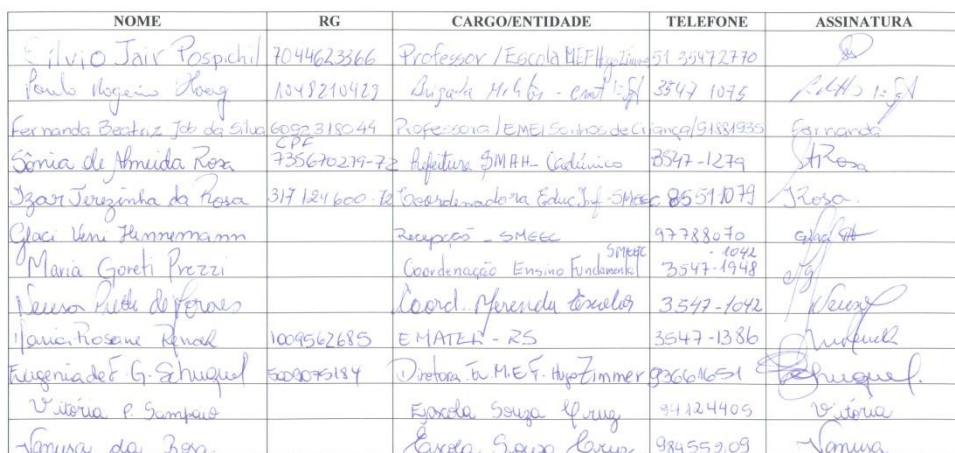 NOME RG CARGO/ENTIDADE TELEFONE ASSINATURA
Silvio Jair Pospichil 7044623366 Professor / Escola MEF Hugo Zimmer 51 35472770
Paulo Rogerio 1048210429 Brigada 3547 1075
Fernanda Beatriz Job da Silva 6092318044 Professora / EMEI Sonhos de Criança / 91881935 Fernanda
Sônia de Almeida Rosa CPF 735670279-72 Prefeitura SMAH - Cadúnico 3547-1279 Rosa
Izar Terezinha da Rosa 317124600-72 Coordenadora Educ. Inf - SMEEC 85591079 IRosa.
Glaci Veni Hennemann Recepção - SMEEC 97788070
Maria Goreti Prezzi Coordenação Ensino Fundamental SMEEC 3547-1948 - 1042
Neusa de Coord. Merenda Escolar 3547-1042 Neusa
Maria Rosane 1009562685 EMATER - RS 3547-1386
Eugenia de F. G. Schuquel 5009075184 Diretora E. M. E. F. Hugo Zimmer 93661651 Schuquel.
Vitória P. Sampaio Escola Souza Cruz 94124405 Vitória
Vanusa da Rosa. Escola Souza Cruz 98455909 Vanusa